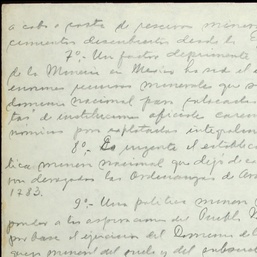 a cabo a costa de
cimientos descubiertos desde la E
7º.- Un factor deprimente
de la Minería en México ha sido el e
enormes recursos minerales que s
dominio nacional para
tas de instituciones oficiales caren
nómicos para explotarlas integralm
8º.- Es urgente el establec
lítica minera nacional que dejó de
por derogadas las Ordenanzas de Ara
1783.
9º.- Una política minera
ponder a las aspiraciones del Pueblo M
por base el ejercicio del Dominio de l
queza mineral del suelo y del subsuelo